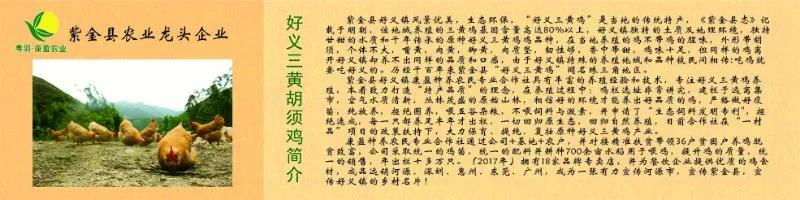 粤羽·康盈农业
紫金县农业龙头企业
好义三黄胡须鸡简介
紫金县好义镇风景优美，生态环保，“好义三黄鸡”是当地的传统特产，《紫金县志》记
载于明朝，该地域养殖的三黄鸡基因含量高达80%以上，好义镇独特的土质及地理环境，独特
甘甜的水质和千年传承的原种好义三黄鸡鸡品种，在当地养殖的鸡不带鸡的腥味，外形带胡
须，个体不大，嘴黄，肉黄，脚黄，肉质坚，软性够，香中带甜，鸡味十足，但同样的鸡离
开好义镇却养不出同样的品质和口感，由于好义镇特殊的养殖地域和品种被民间相传:吃鸡就
要吃好义的。历经千百年来紫金县“好义三黄鸡”闻名珠三角地区。
紫金县好义镇康盈种养农民专业合作社具有丰富的养殖经验和技术，专注好义三黄鸡养
殖，本着致力打造“特产品质”的理念，在养殖过程中：鸡栏选址非常讲究，建栏于远离集
市，空气水质清新，丛林茂盛的原始山林，相信好的环境才能养出好品质的鸡，严格做好疫
苗，纯放养，拒绝圈养，喂五谷杂粮，不喂饲料与激素，并申请了“生态饲料发明专利”，拒
绝速成，每一只都养足半年才出栏，一切回归原生态，回归自然养殖，目前合作社在“一村一
品”项目的政策扶持下，大力保育、提纯、复壮原种好义三黄鸡产业。
康盈种养农民专业合作社通过公司+基地+农户，并对接精准扶贫带领36户贫困户养鸡脱
贫致富，公司采取统一的鸡苗，统一的配料并耕种700余亩水稻用于喂鸡，提升鸡的质量，统
一的销售，年出栏十多万只。（2017年）拥有18家品牌专卖店，并为餐饮企业提供优质的鸡食
材，成品远销河源、深圳、惠州、东莞、广州，成为一张有力宣传河源市，宣传紫金县，宣
传好义镇的乡村名片！